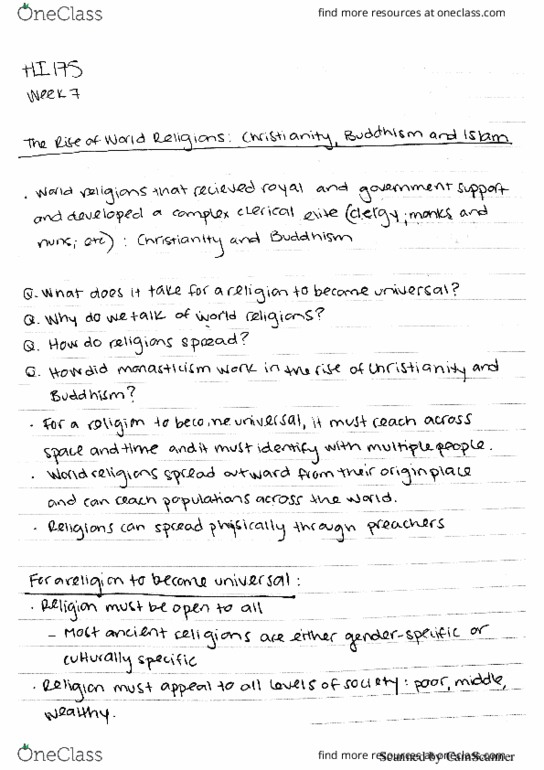 OneClass
find more resources at oneclass.com
HI175
Week 7
The Rise of World Religions: Christianity, Buddhism and Islam
· World religions that recieved royal and government support
and developed a complex clerical elite (clergy, monks and
nuns, etc) : Christianity and Buddhism
Q. What does it take for a religion to become universal?
Q. Why do we talk of world religions?
Q. How do religions spread?
Q. How did monasticism work in the rise of Christianity and
Buddhism?
· For a religion to become universal, it must reach across
space and time and it must identify with multiple people.
· World religions spread outward from their origin place
and can reach populations across the world.
· Religions can spread physically through preachers
For a religion to become universal :
· Religion must be open to all
- Most ancient religions are either gender-specific or
culturally specific
· Religion must appeal to all levels of society : poor, middle,
wealthy.
OneClass
find more resources at oneclass.com
Scanned by CamScanner